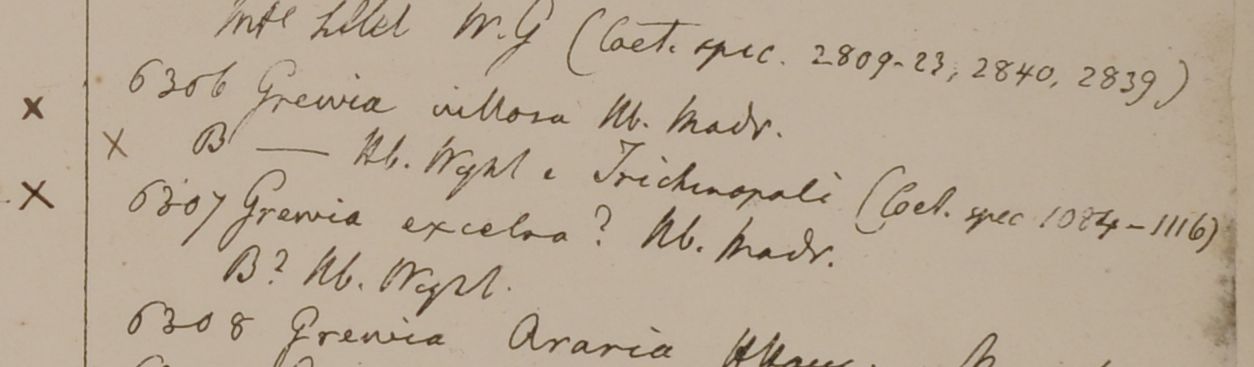 W.G (Cat. spec. 2809-23, 2840, 2839)
6306 Grewia villosa Hb. Madr.
x
x B — Hb. Wght e Trichinopoli (Cat. spec 1084-1116)
x 6307 Grewia excelsa? Hb. Madr.
B? Hb. Wght.
6308 Grewia